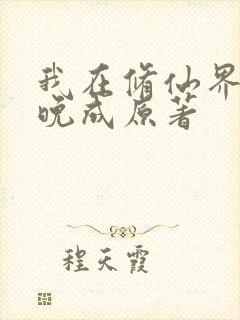 我在修仙界
晚成原著
程天霞